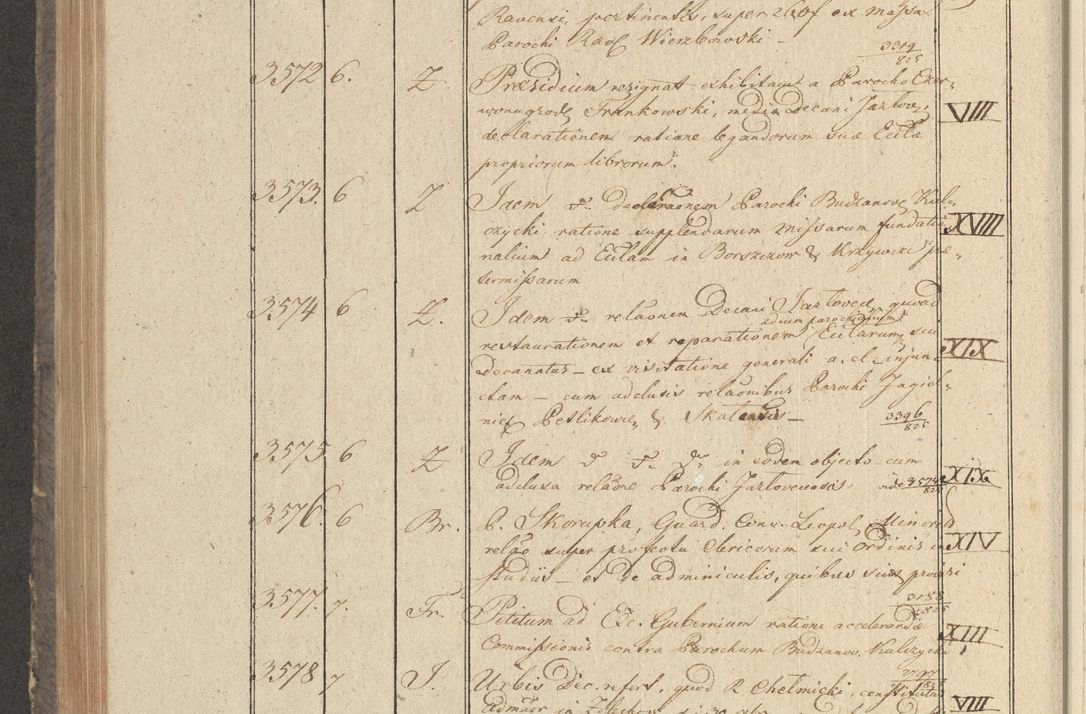 Ravensi, pertinentis, super 2601 ex massa
Parochi Rav. Wierzbowski –
3319/825
3572 6. Z. Præsidium resignat exhibitam a Parocho Czer-
wonogrod. Frankowski, media Decani Jazlov. VIII
declarationem ratione legandorum suæ Eccłæ
propriorum librorum.
3573. 6 Z Idem declaraonem Parochi Budzanov. Kul-
czycki ratione supplendarum Missarum fundatio- XVIII
nalium ad Eccłam in Borszczow & Krzywcze præ-
termissarum
3574 6 Z. Idem relaonem Decani Jazlovec. quoad
ædium parochialium
restaurationem et reparationem Ecclarum, sui XIX
Decanatus – ex visitatione generali a. el. injun-
ctam – cum adclusis relaonibus Parochi Jagiel-
nic. Petlikowc. & Skalensis – 3396/825
3575. 6 Z Idem in eodem objecto cum
adclusa relaõne Parochi Jazlovecensis vide 3574/825 XIX
3576. 6 Br. P. Skorupka, Guard. Conv. Leopol. Minorum
relaõ super profectu Clericorum sui Ordinis in XIV
studiis – et de adminiculis, quibus sunt provisi
3188/825
3577. 7. Fr. Petitum ad Exc. Gubernium ratione accelerandæ XIII
Commissionis contra Parochum Budzanov. Kulczycki
3578 7 J. Urbis Dic. refert, quod R Chelmicki, constitutus
Admâr in VIII